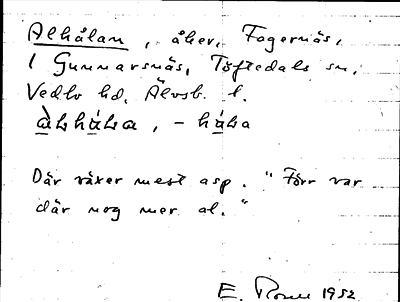 Alhålan, åker, Fagernäs,
1 Gunnarsnäs, Töftedals sn,
Vedbo hd, Älvsb. l.
àlhála, - hála
Där växer mest asp. "Förr var
där nog mer al."
E. 1952